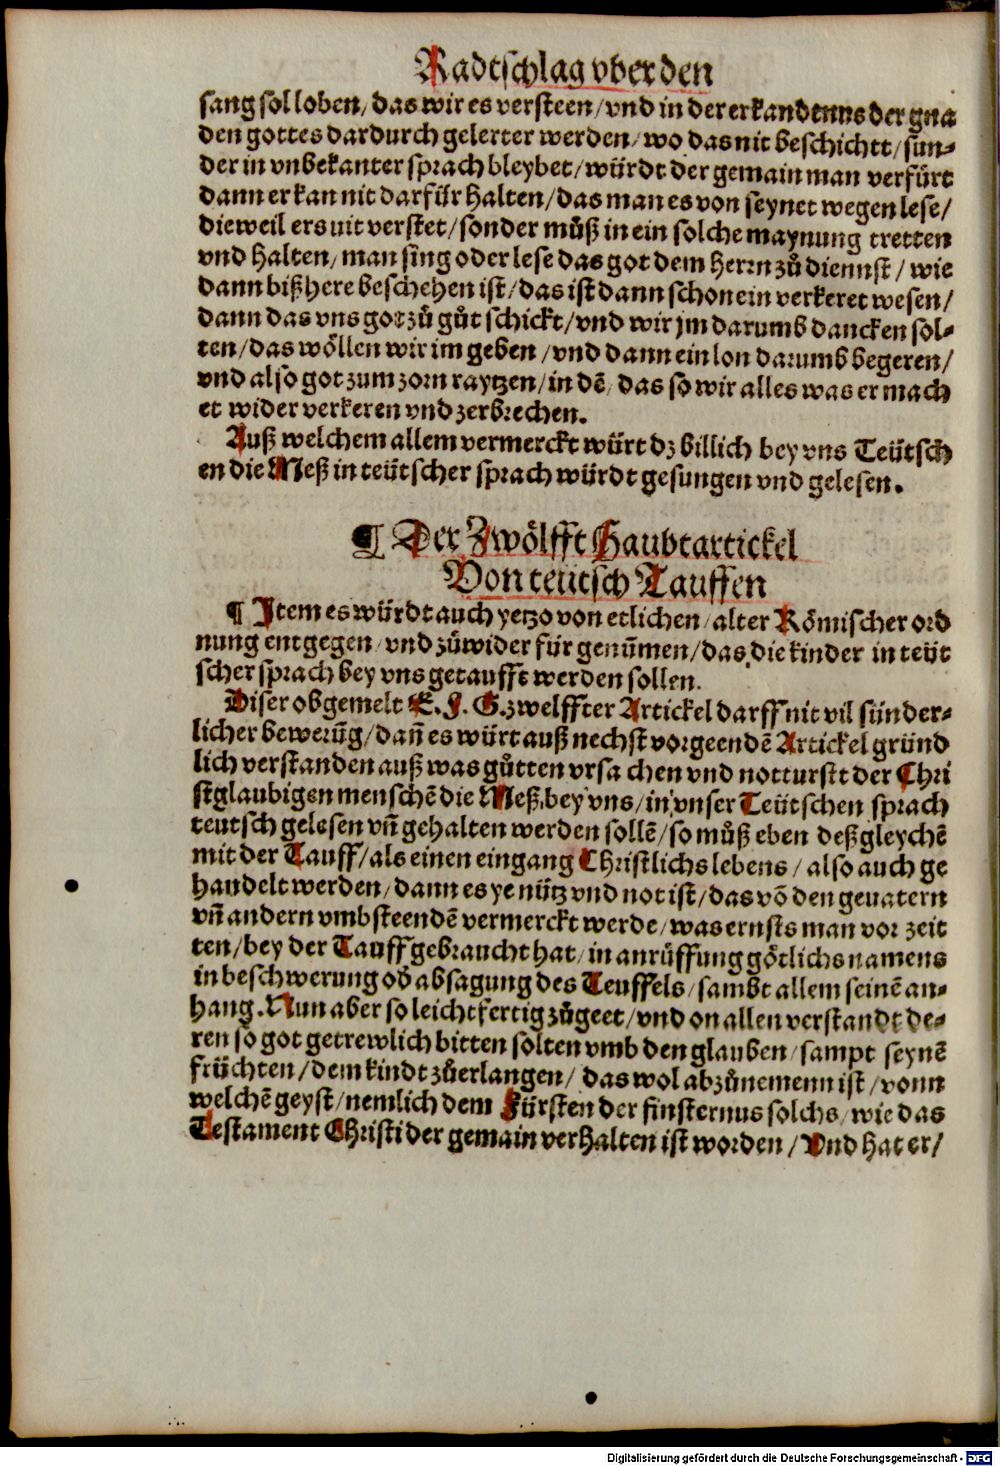 Radtschlag vber den
sang sol loben/ das wir es versteen/ vnd in der erkandtnus der gna
den gottes dardurch gelerter werden/ wo das nit beschichtt/ sün-
der in vnbekanter sprach bleybet/ würdt der gemain man verfürt
dann er kan nit darfür halten/ das man es von seynet wegen lese/
dieweil ers nit verstet/ sonder můß in ein solche maynung tretten
vnd halten/ man sing oder lese das got dem herrn zů diennst/ wie
dann bißhere beschehen ist/ das ist dann schon ein verkeret wesen/
dann das vns got zů gůt schickt/ vnd wir jm darumb dancken sol-
ten/ das wöllen wir im geben/ vnd dann ein lon darumb begeren/
vnd also got zum zorn raytzen/ in dē/ das so wir alles was er mach
et wider verkeren vnd zerbrechen.
Auß welchem allem vermerckt würt dz billich bey vns Teütsch
en die Meß in teütscher sprach würdt gesungen vnd gelesen.
¶ Der Zwölfft Haubtartickel
Von teütsch Tauffen
¶ Item es würdt auch yetzo von etlichen/ alter Römischer ord
nung entgegen/ vnd zůwider für genūmen/ das die kinder in teüt
scher sprach bey vns getaufft werden sollen.
Diser obgemelt E. F. G. zwelffter Artickel darff nit vil sünder-
licher bewerūg/ dañ es würt auß nechst vorgeendē Artickel gründ
lich verstanden auß was gůtten vrsa chen vnd notturftt der Chri
stglaubigen menschē die Meß bey vns/ in vnser Teütschen sprach
teutsch gelesen vñ gehalten werden sollē/ so můß eben deßgleychē
mit der Tauff/ als einen eingang Christlichs lebens/ also auch ge
handelt werden/ dann es ye nütz vnd not ist/ das vō den geuatern
vñ andern vmbsteendē vermerckt werde/ was ernsts man vor zeit
ten/ bey der Tauff gebraucht hat/ in anrüffung götlichs namens
in beschwerung od̕ absagung des Teuffels/ sambt allem seinē an-
hang. Nun aber so leichtfertig zůgeet/ vnd on allen verstandt de-
ren so got getrewlich bitten solten vmb den glauben/ sampt seynē
früchten/ dem kindt zůerlangen/ das wol abzůnemenn ist/ vonn
welchē geyst/ nemlich dem Fürsten der finsternus solchs/ wie das
Testament Christi der gemain verhalten ist worden/ Vnd hat er/
Digitalisierung gefördert durch die Deutsche Forschungsgemeinschaft - DFG